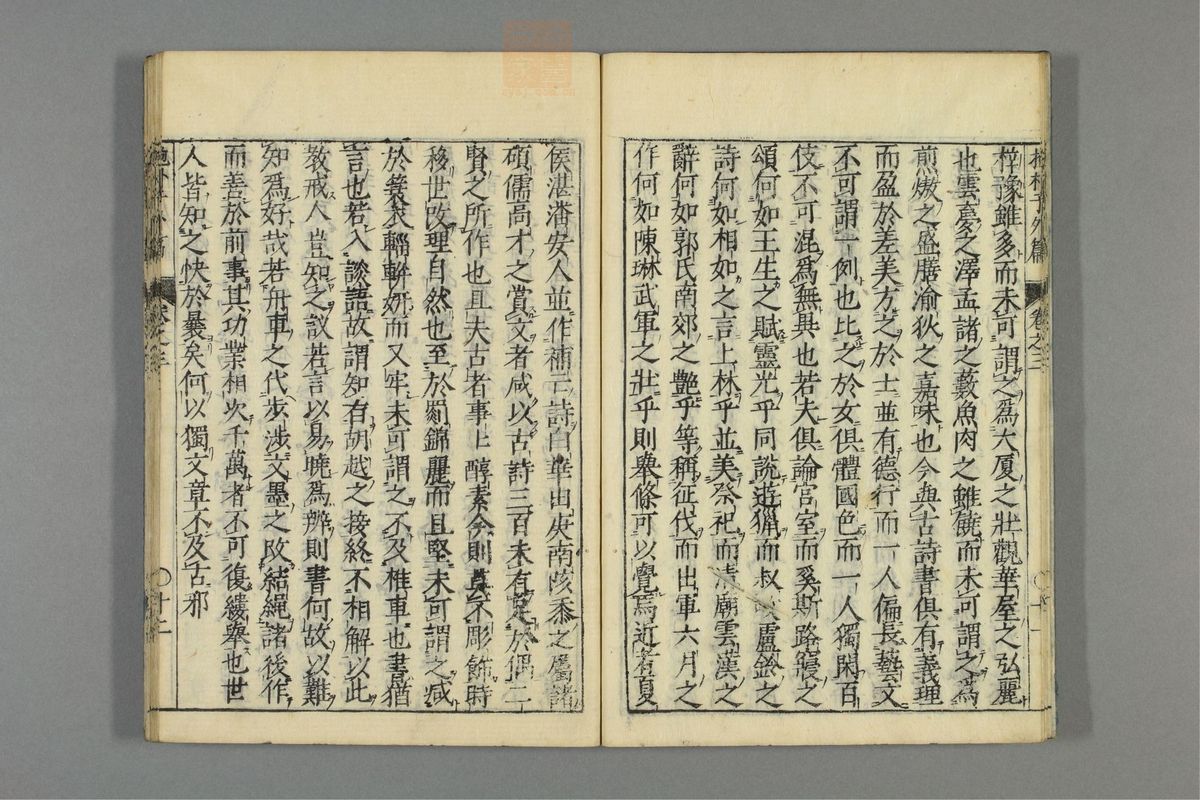 梓豫雖多而未可謂之爲大厦之壯觀華屋之弘麗
也雲夢之澤孟諸之藪魚肉之雖饒而未可謂之爲
煎熬之盛膳渝狄之嘉味也今與古詩書俱有義理
而盈於差美方之於士並有德行而一人偏長藝文
不可謂一例也比之於女俱體國色而一人獨閑百
伎不可混爲無異也若夫俱論宮室而奚斯路寢之
頌何如王生之賦靈光乎同說遊獵而叔盧鈴之
詩何如相如之言上林乎並美祭祀而清廟雲漢之
辭何如郭氏南郊之艶乎等稱征伐而出軍六月之
作何如陳琳武軍之壯乎則舉條可以覺焉近者夏
侯湛潘安人並作補亡詩白華由庚南陔黍之屬諸
碩儒高才之賞文者咸以古詩三百未有足於偶二
賢之所作也且夫古者事上醇素今則莫不彫飾時
移世改理自然也至於罽錦麗而且堅未可謂之减
於蓑衣輜軿妍而又牢未可謂之不及椎車也書猶
言也若入談語故謂知有胡越之接終不相解以此
教戒人豈知之哉若言以易曉爲辨則書何故以難
知爲好哉若舟車之代步涉文墨之改結繩諸後作
而善於前事其功業相次千萬者不可復縷舉也世
人皆知之快於曩矣何以獨文章不及古邪
卷之三
十二